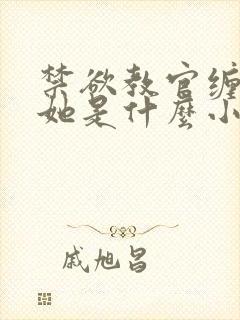 禁欲教官缠
她是什麽小
戚旭昌